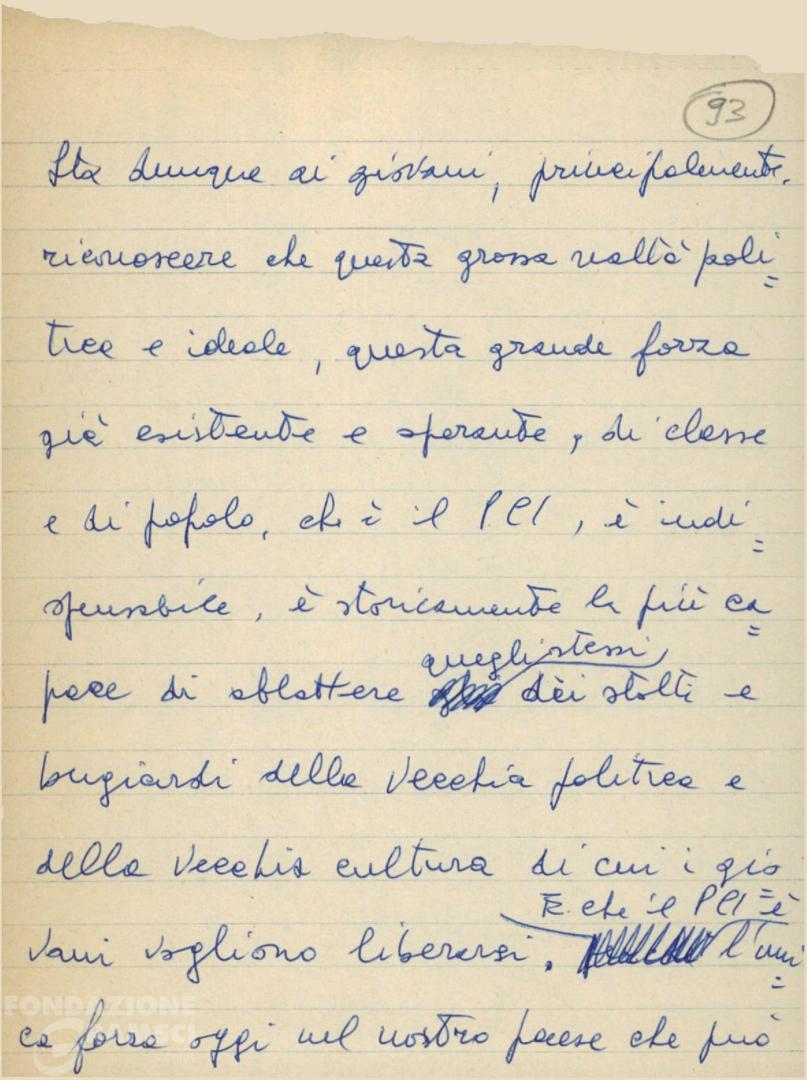 93
Sta dunque ai giovani, principalmente,
riconoscere che questa grossa realtà poli=
tica e ideale, questa grande forza
già esistente e operante, di classe
e di popolo, che è il PCI, è indi=
spensabile, è storicamente la più ca=
quegli stessi
pace di abbattere dèi stolti e
bugiardi della vecchia politica e
della vecchia cultura di cui i gio=
E che il PCI è
vani vogliono liberarsi. l'uni=
ca forza oggi nel nostro paese che può
FONDAZIONE
GRAMSCI